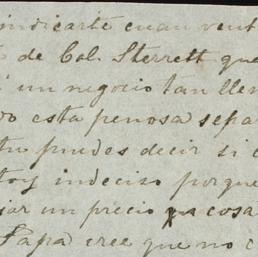 indicarte cuan vent
de Col. Sterrett que
un negocio tan lle
esta penosa sepa
tu puedes decir si
indeciso porque
un precio cosa
Papá cree que no c